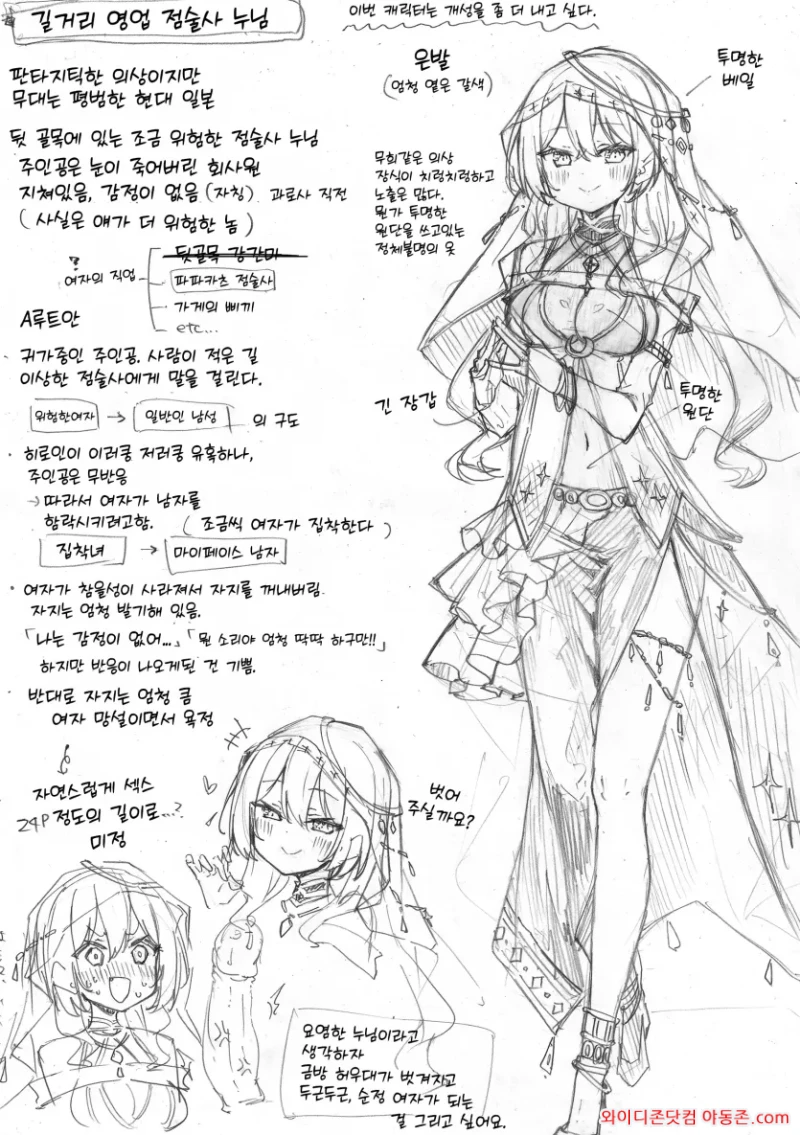 길거리 영업 점술사 누님
이번 캐릭터는 개성을 좀 더 내고 싶다.
판타지틱한 의상이지만
무대는 평범한 현대 일본
뒷 골목에 있는 조금 위험한 점술사 누님
주인공은 눈이 죽어버린 회사원
지쳐있음, 감정이 없음 (자칭) 과로사 직전
( 사실은 얘가 더 위험한 놈 )
?
여자의 직업
뒷골목 강간마
파파카츠 점술사
가게의 삐끼
etc...
A루트안
· 귀가중인 주인공, 사람이 적은 길
이상한 점술사에게 말을 걸린다.
위험한여자 → 일반인 남성 의 구도
· 히로인이 이러쿵 저러쿵 유혹하나,
주인공은 무반응
→ 따라서 여자가 남자를
함락시키려고함. ( 조금씩 여자가 집착한다 )
집착녀 → 마이페이스 남자
· 여자가 참을성이 사라져서 자지를 꺼내버림.
자지는 엄청 발기해 있음.
「나는 감정이 없어...」「뭔 소리야 엄청 딱딱 하구만!!」
하지만 반응이 나오게된 건 기쁨.
· 반대로 자지는 엄청 큼
여자 망설이면서 욕정
자연스럽게 섹스
24P 정도의 길이로...?
미정
은발
(엄청 옅은 갈색)
투명한
베일
무희같은 의상
장식이 치렁치렁하고
노출은 많다.
뭔가 투명한
원단을 쓰고있는
정체불명의 옷
긴 장갑
투명한
원단
벗어
주실까요?
요염한 누님이라고
생각하자
금방 허우대가 벗겨지고
두근두근, 순정 여자가 되는
걸 그리고 싶어요.
와이디존닷컴 아동존.com